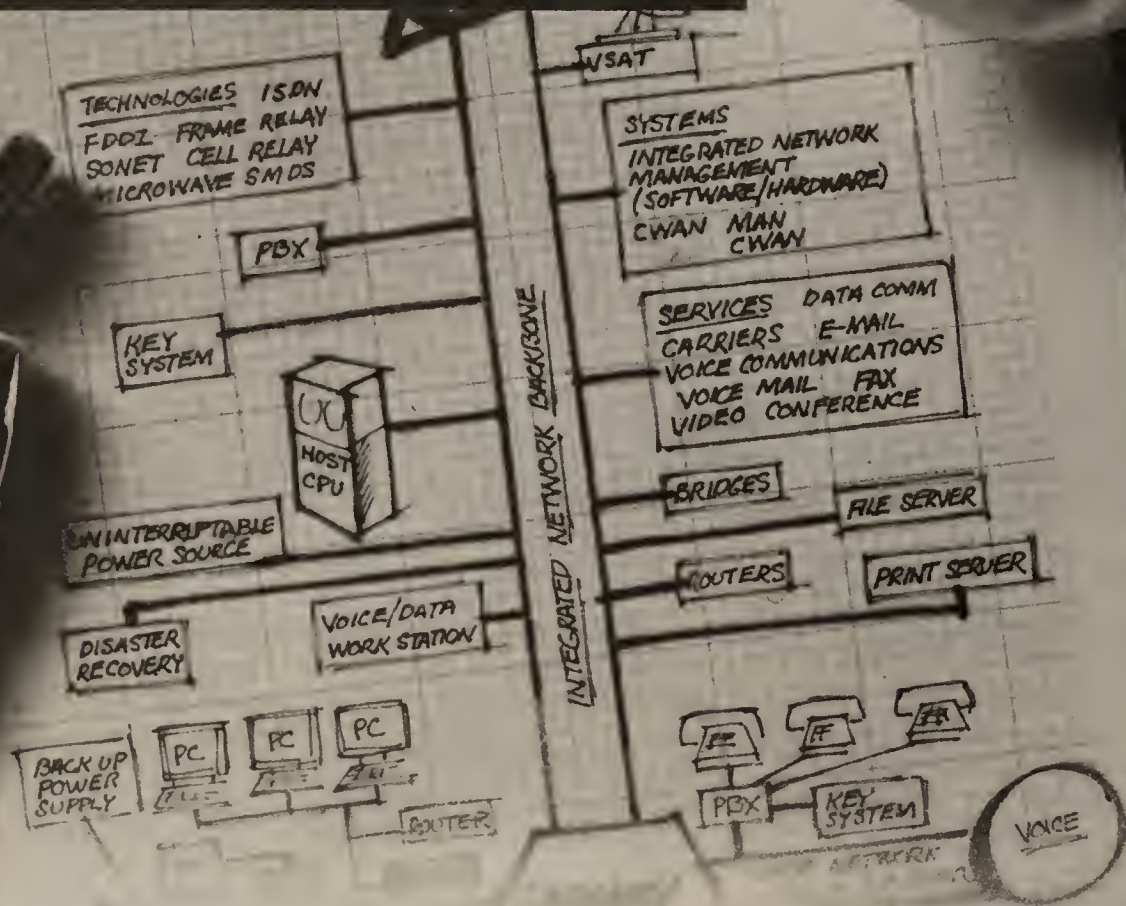 VSAT
TECHNOLOGIES ISDN
FDDI FRAME RELAY
SONET CELL RELAY
MICROWAVE SMDS
SYSTEMS
INTEGRATED NETWORK
MANAGEMENT
(SOFTWARE/HARDWARE)
CWAN MAN
CWAN
PBX
KEY
SYSTEM
SERVICES DATA COMM
CARRIERS E-MAIL
VOICE COMMUNICATIONS
VOICE MAIL FAX
VIDEO CONFERENCE
HOST
CPU
INTEGRATED NETWORK BACKBONE
BRIDGES
FILE SERVER
UNINTERRUPTABLE
POWER SOURCE
ROUTERS
PRINT SERVER
DISASTER
RECOVERY
VOICE/DATA
WORK STATION
BACK UP
POWER
SUPPLY
PC
PC
PC
ROUTER
PBX
KEY
SYSTEM
NETWORK
VOICE